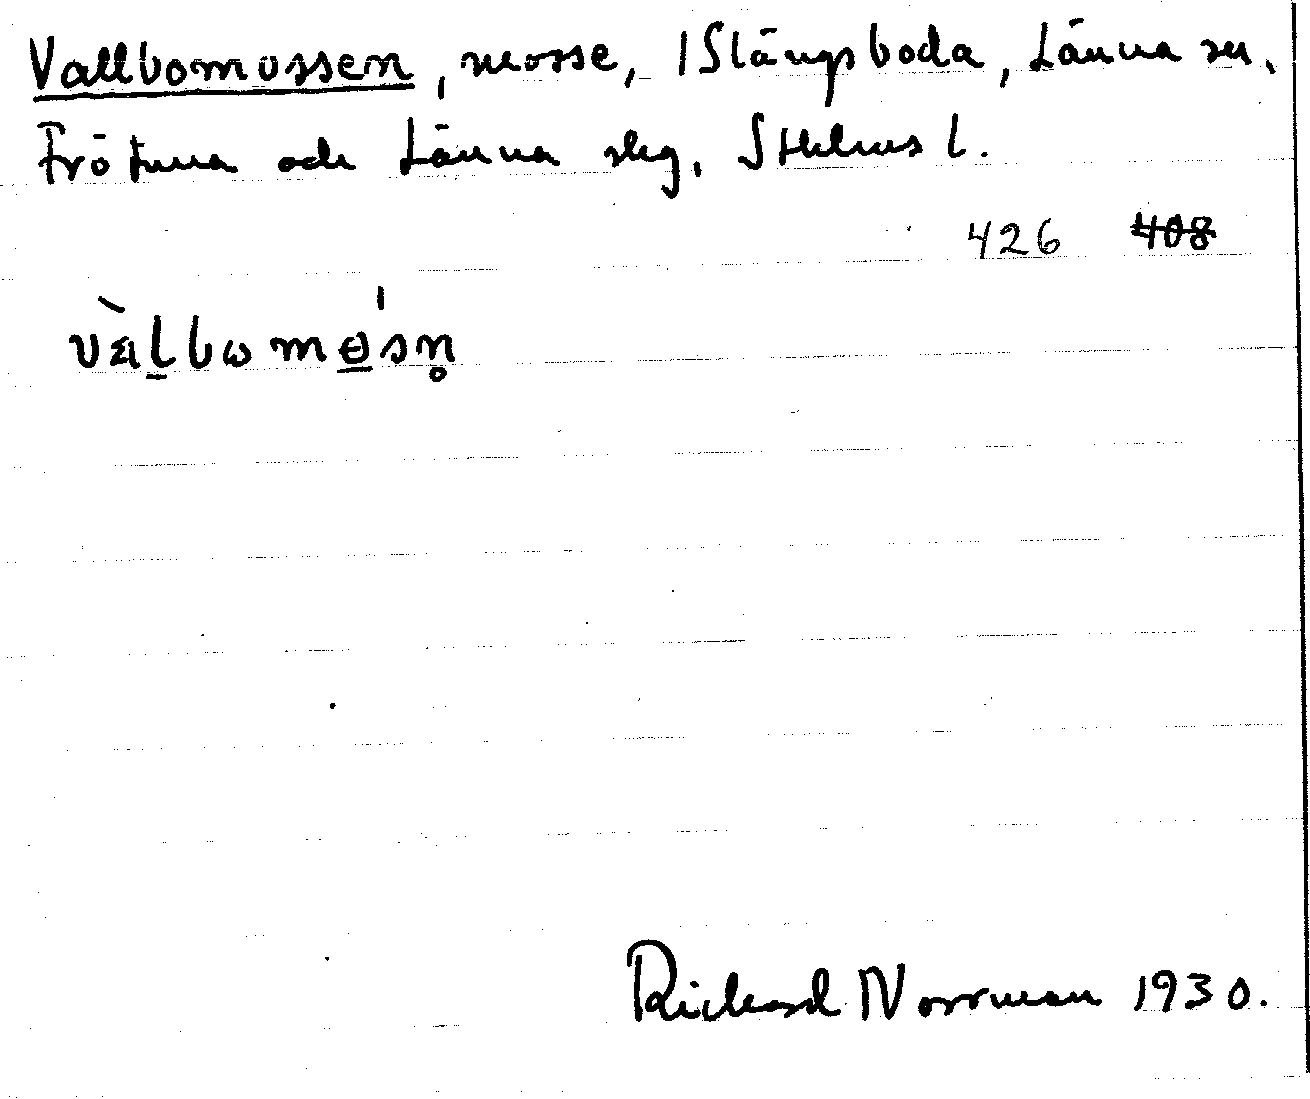 Vallbomossen, mosse, 1 Slängsboda, Länna sn.
Frötuna och Länna skg. Sthlms l.
426 408
vàlbomɵ́sn̥
Rickard Norrman 1930.